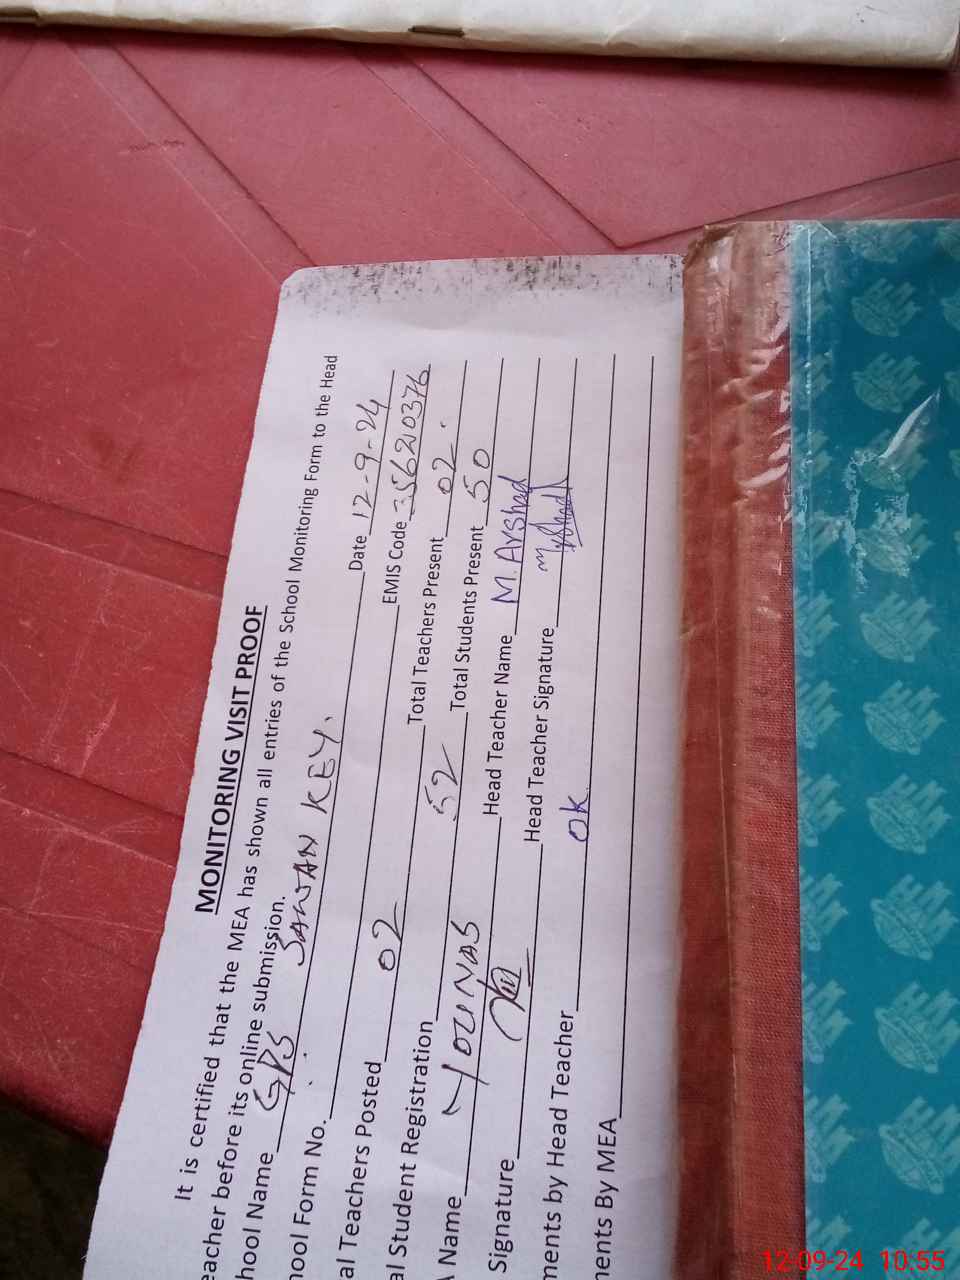 MONITORING VISIT PROOF
It is certified that the MEA has shown all entries of the School Monitoring Form to the Head
eacher before its online submission.
hool Name GPS SAWAN KEY. Date 12-9-24
hool Form No. EMIS Code 35620376
al Teachers Posted 02 Total Teachers Present 02.
al Student Registration 52 Total Students Present 50
A Name YOUNAS Head Teacher Name M. Arshad
Signature Head Teacher Signature M Arshad
ments by Head Teacher OK
ments By MEA
12-09-24 10:55